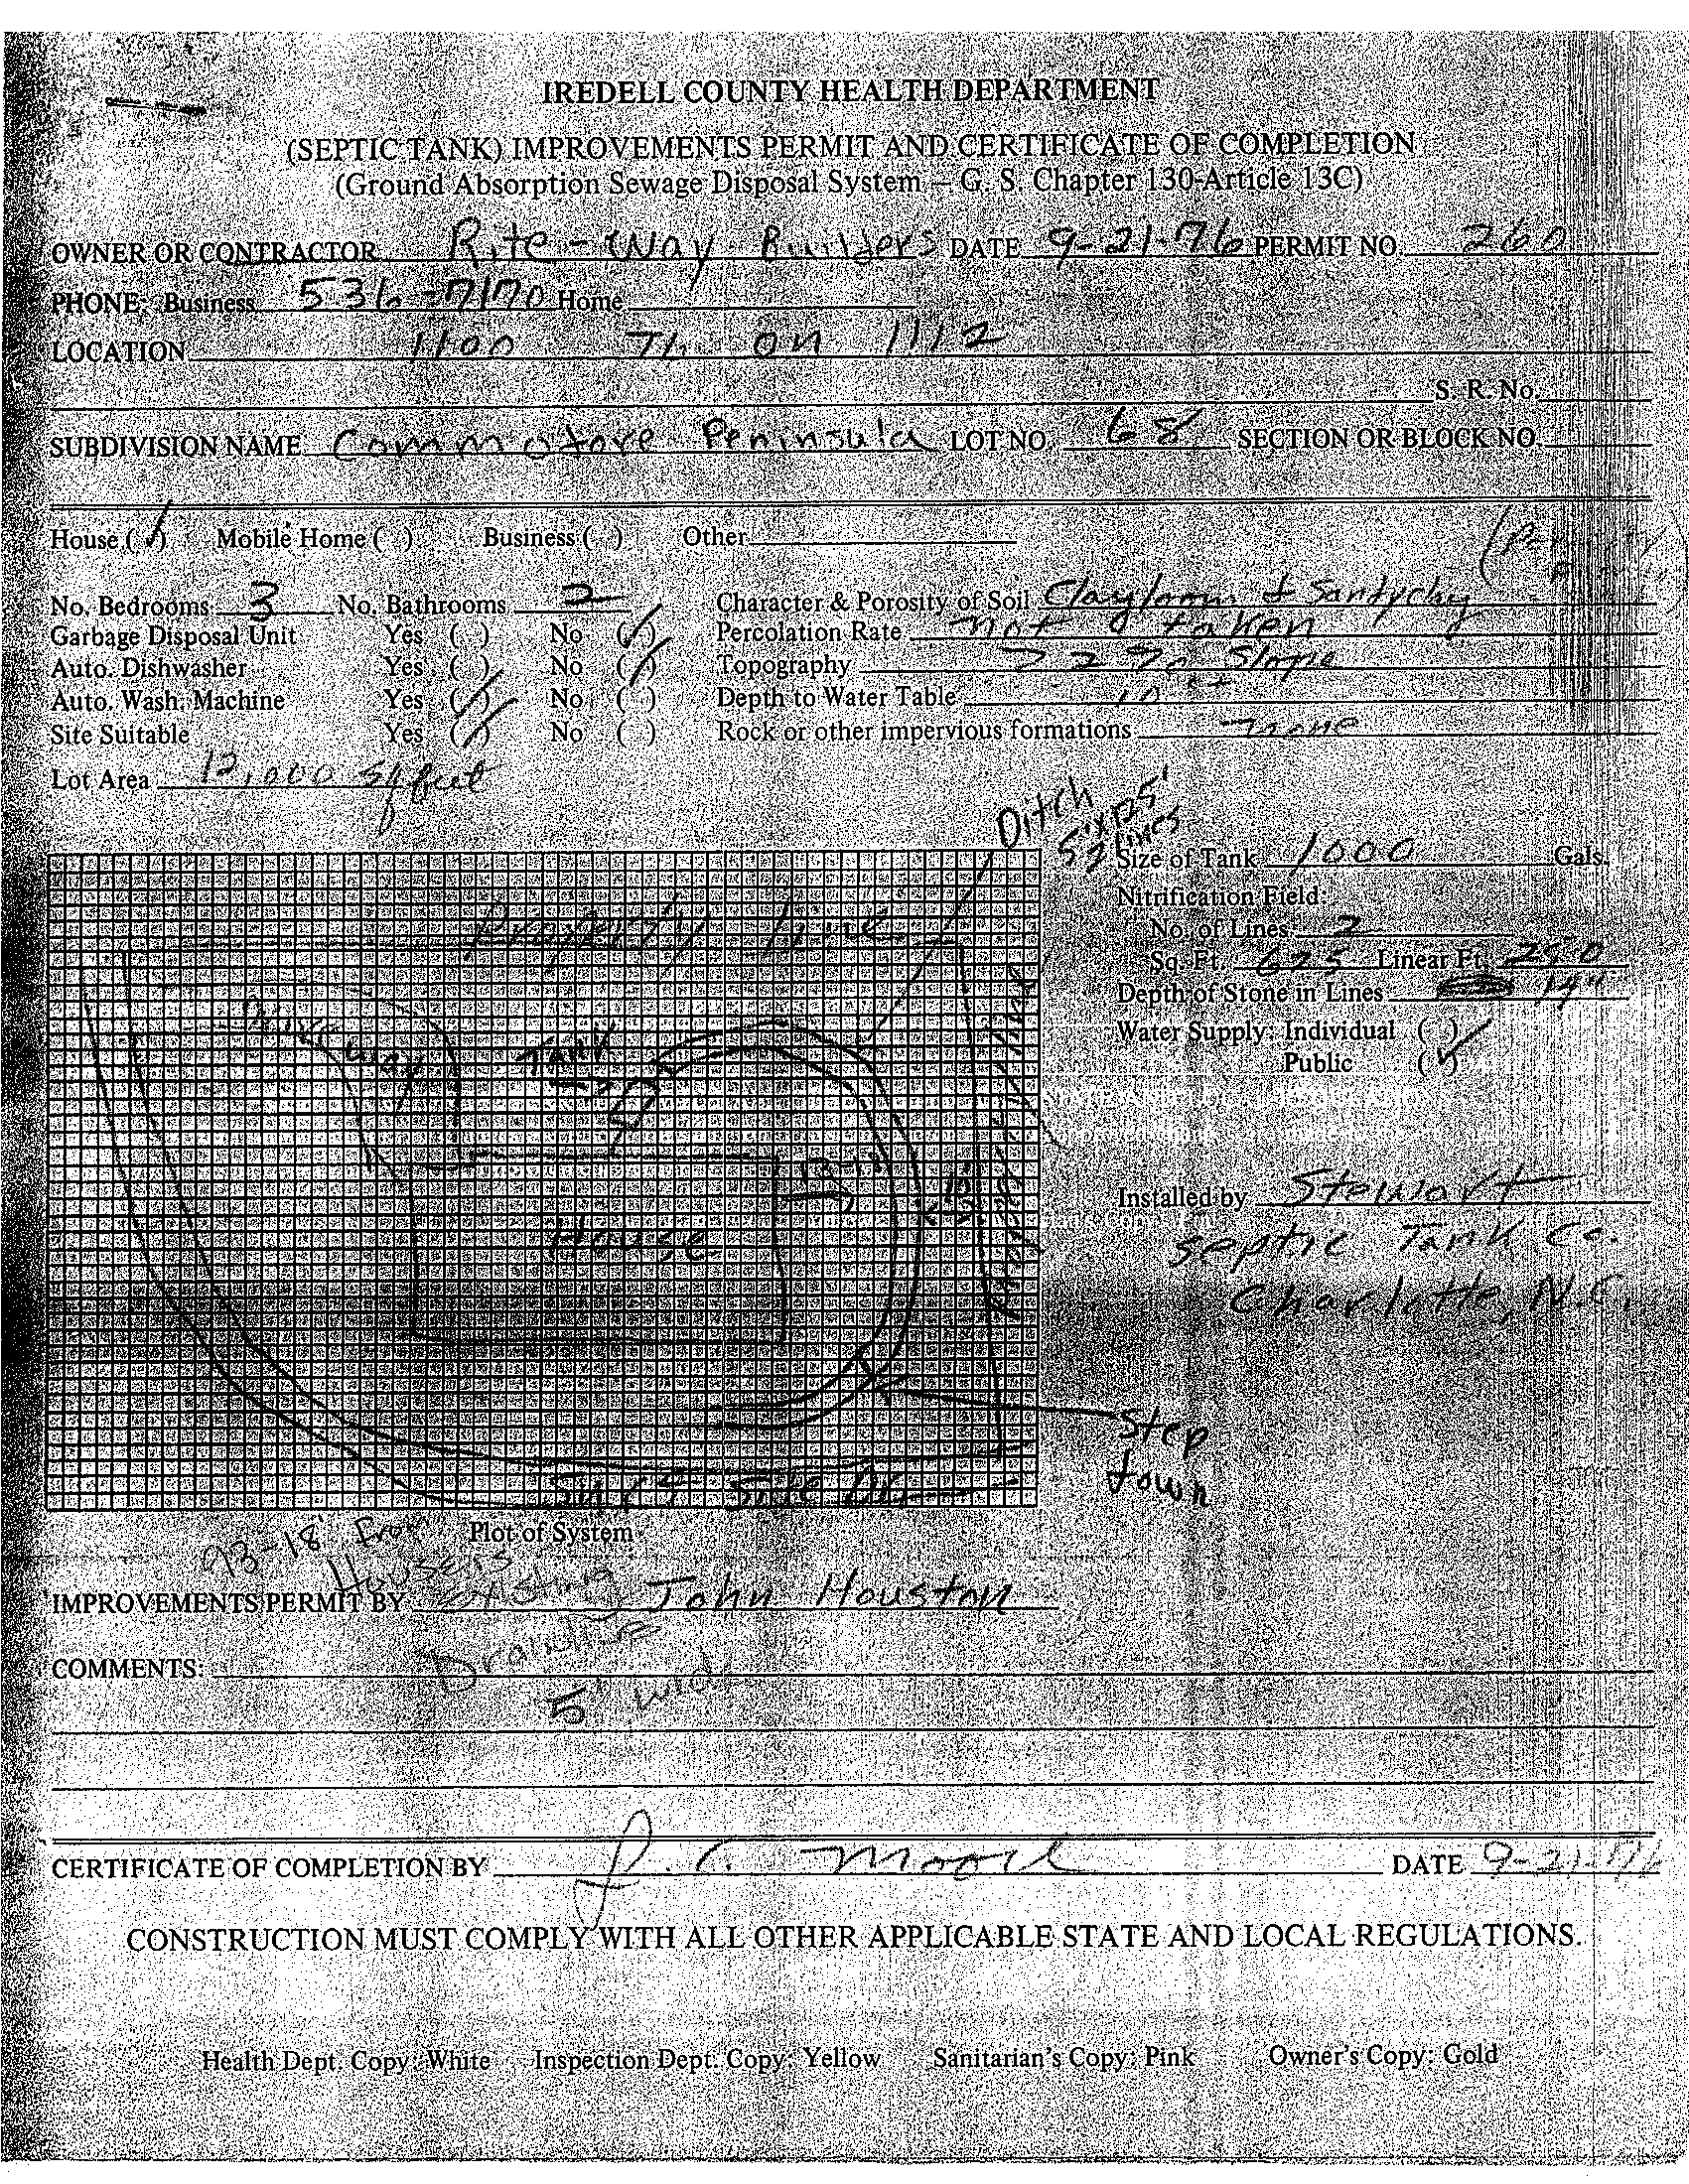 IREDELL COUNTY HEALTH DEPARTMENT
(SEPTIC TANK) IMPROVEMENTS PERMIT AND CERTIFICATE OF COMPLETION
(Ground Absorption Sewage Disposal System — G. S. Chapter 130-Article 13C)
OWNER OR CONTRACTOR Rite-Way Builders DATE 9-21-76 PERMIT NO. 260
PHONE: Business 536-7170 Home
LOCATION 1100 TL on 1112
S. R. No.
SUBDIVISION NAME Commodore Peninsula LOT NO. 68 SECTION OR BLOCK NO.
House (✓) Mobile Home ( ) Business ( ) Other
No. Bedrooms 3 No. Bathrooms 2 Character & Porosity of Soil Clay loom & Sandy clay
Garbage Disposal Unit Yes ( ) No (✓) Percolation Rate not taken
Auto. Dishwasher Yes ( ) No (✓) Topography > 2% Slope
Auto. Wash. Machine Yes (✓) No ( ) Depth to Water Table 10 ft
Site Suitable Yes (✓) No ( ) Rock or other impervious formations none
Lot Area 12,000 sq feet
Ditch
Lines
Size of Tank 1000 Gals.
Nitrification Field:
Property line
No. of Lines 2
Sq. Ft. 625 Linear Ft. 250
Depth of Stone in Lines 14"
Driveway
Tank
Water Supply: Individual ( )
Public (✓)
House
Installed by Stewart
Septic Tank Co.
Charlotte, N.C.
Step
down
Surf Side Dr.
Plot of System
93-18' From
House is
existing
IMPROVEMENTS PERMIT BY John Houston
Drainline
COMMENTS:
5' wide
CERTIFICATE OF COMPLETION BY J. C. Moore DATE 9-21-76
CONSTRUCTION MUST COMPLY WITH ALL OTHER APPLICABLE STATE AND LOCAL REGULATIONS.
Health Dept. Copy: White Inspection Dept. Copy: Yellow Sanitarian's Copy: Pink Owner's Copy: Gold